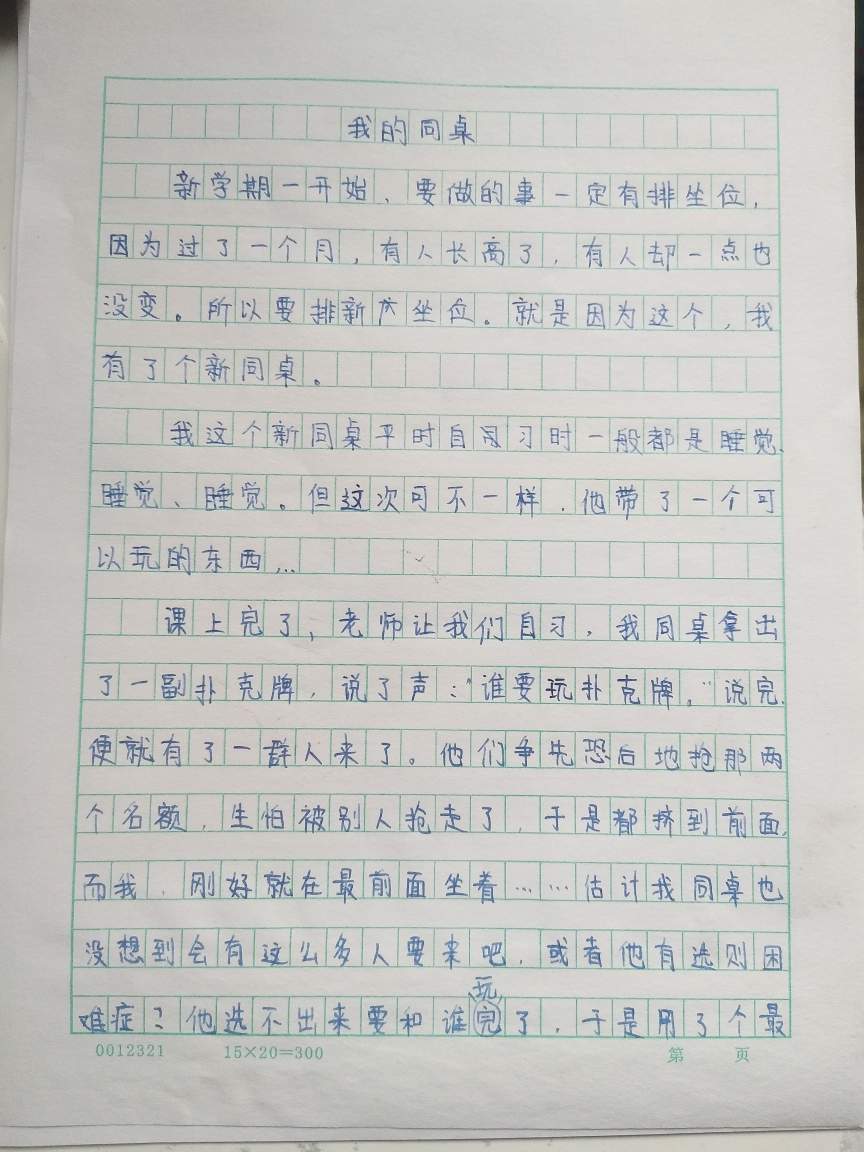 我的同桌
新学期一开始、要做的事一定有排坐位,
因为过了一个月,有人长高了,有人却一点也
没变。所以要排新坐位。就是因为这个,我
有了个新同桌。
我这个新同桌平时自习时一般都是睡觉、
睡觉、睡觉。但这次可不一样.他带了一个可
以玩的东西...
课上完了,老师让我们自习,我同桌拿出
了一副扑克牌,说了声:“谁要玩扑克牌。”说完,
便就有了一群人来了。他们争先恐后地抢那两
个名额,生怕被别人抢走了,于是都挤到前面,
而我,刚好就在最前面坐着……估计我同桌也
没想到会有这么多人要来吧,或者他有选则困
玩
难症?他选不出来要和谁完了,于是用了个最
0012321 15×20=300 第 页